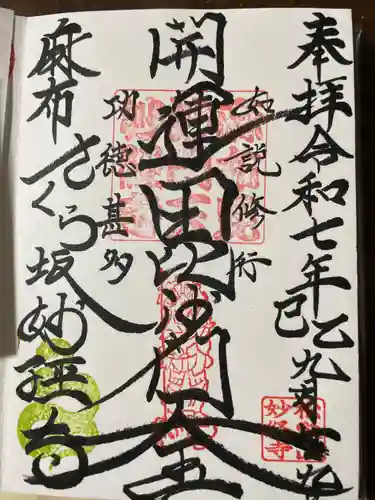 奉拝 令和七年 乙巳 九月
如説修行
開運毘沙門天王
功徳甚多
麻布 さくら坂 妙経寺